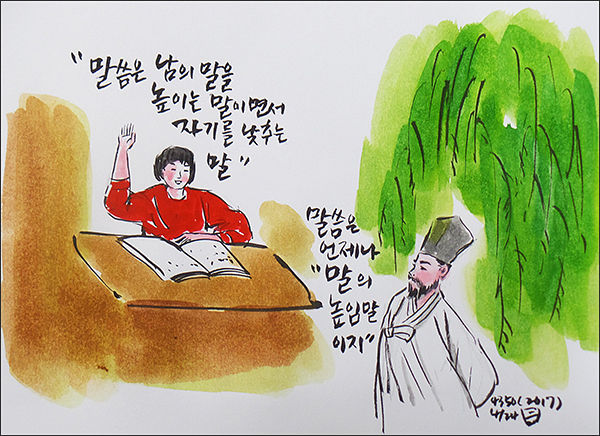 "말씀은 남의 말을
높이는 말이면서
자기를 낮추는
말"
말씀은
언제나
"말의
높임말
이지"
4350(2017)